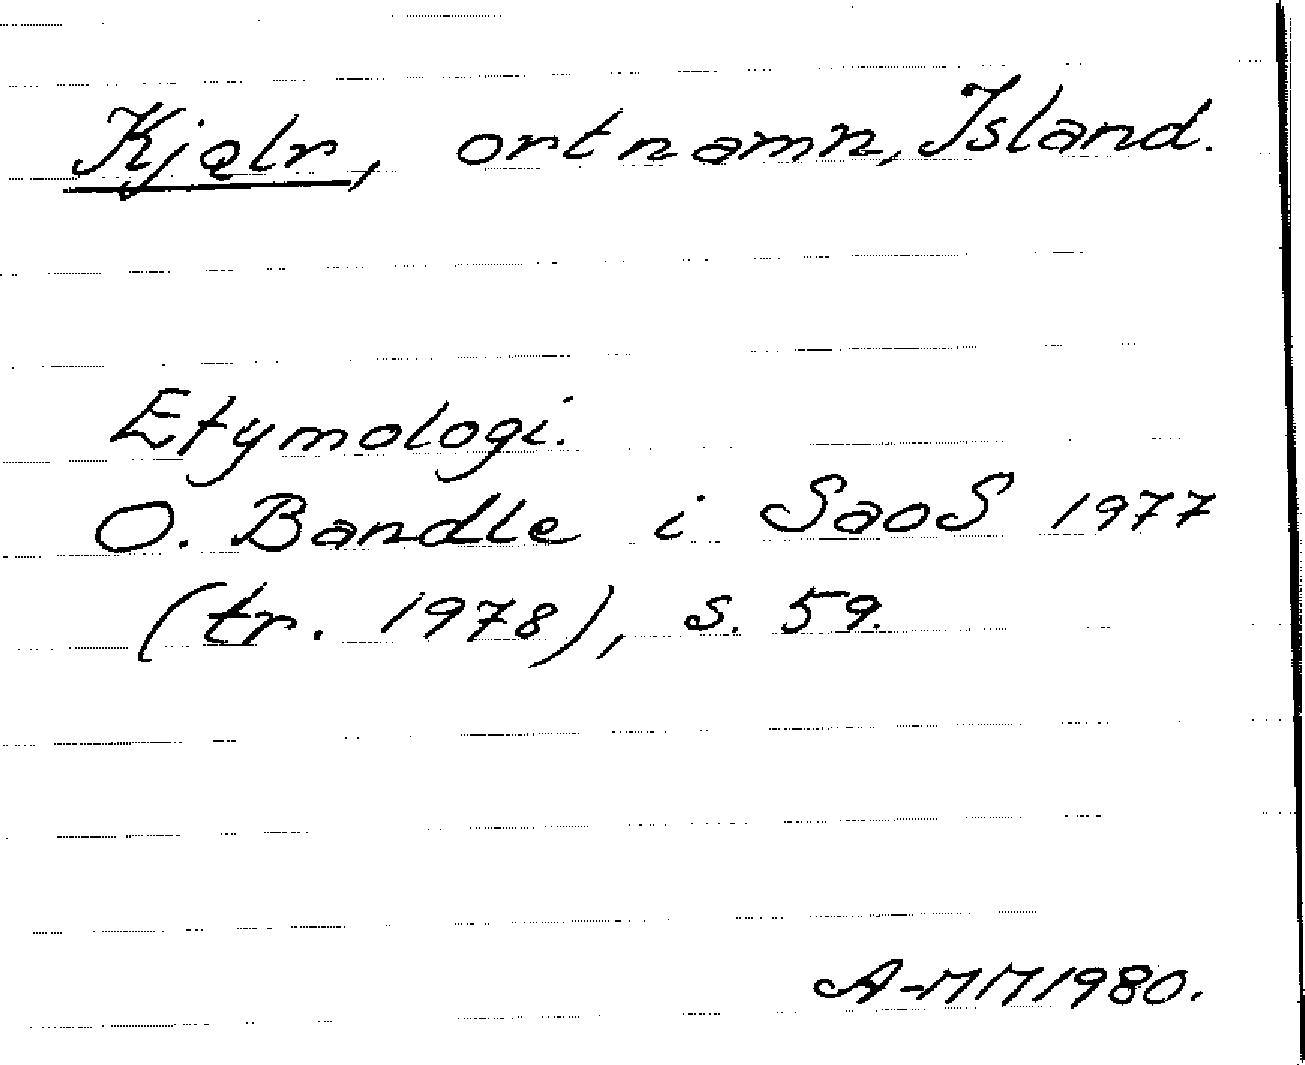 Kjǫlr, ortnamn, Island.
Etymologi.
O. Bandle i SaoS 1977
(tr. 1978), s. 59.
A-MM 1980.